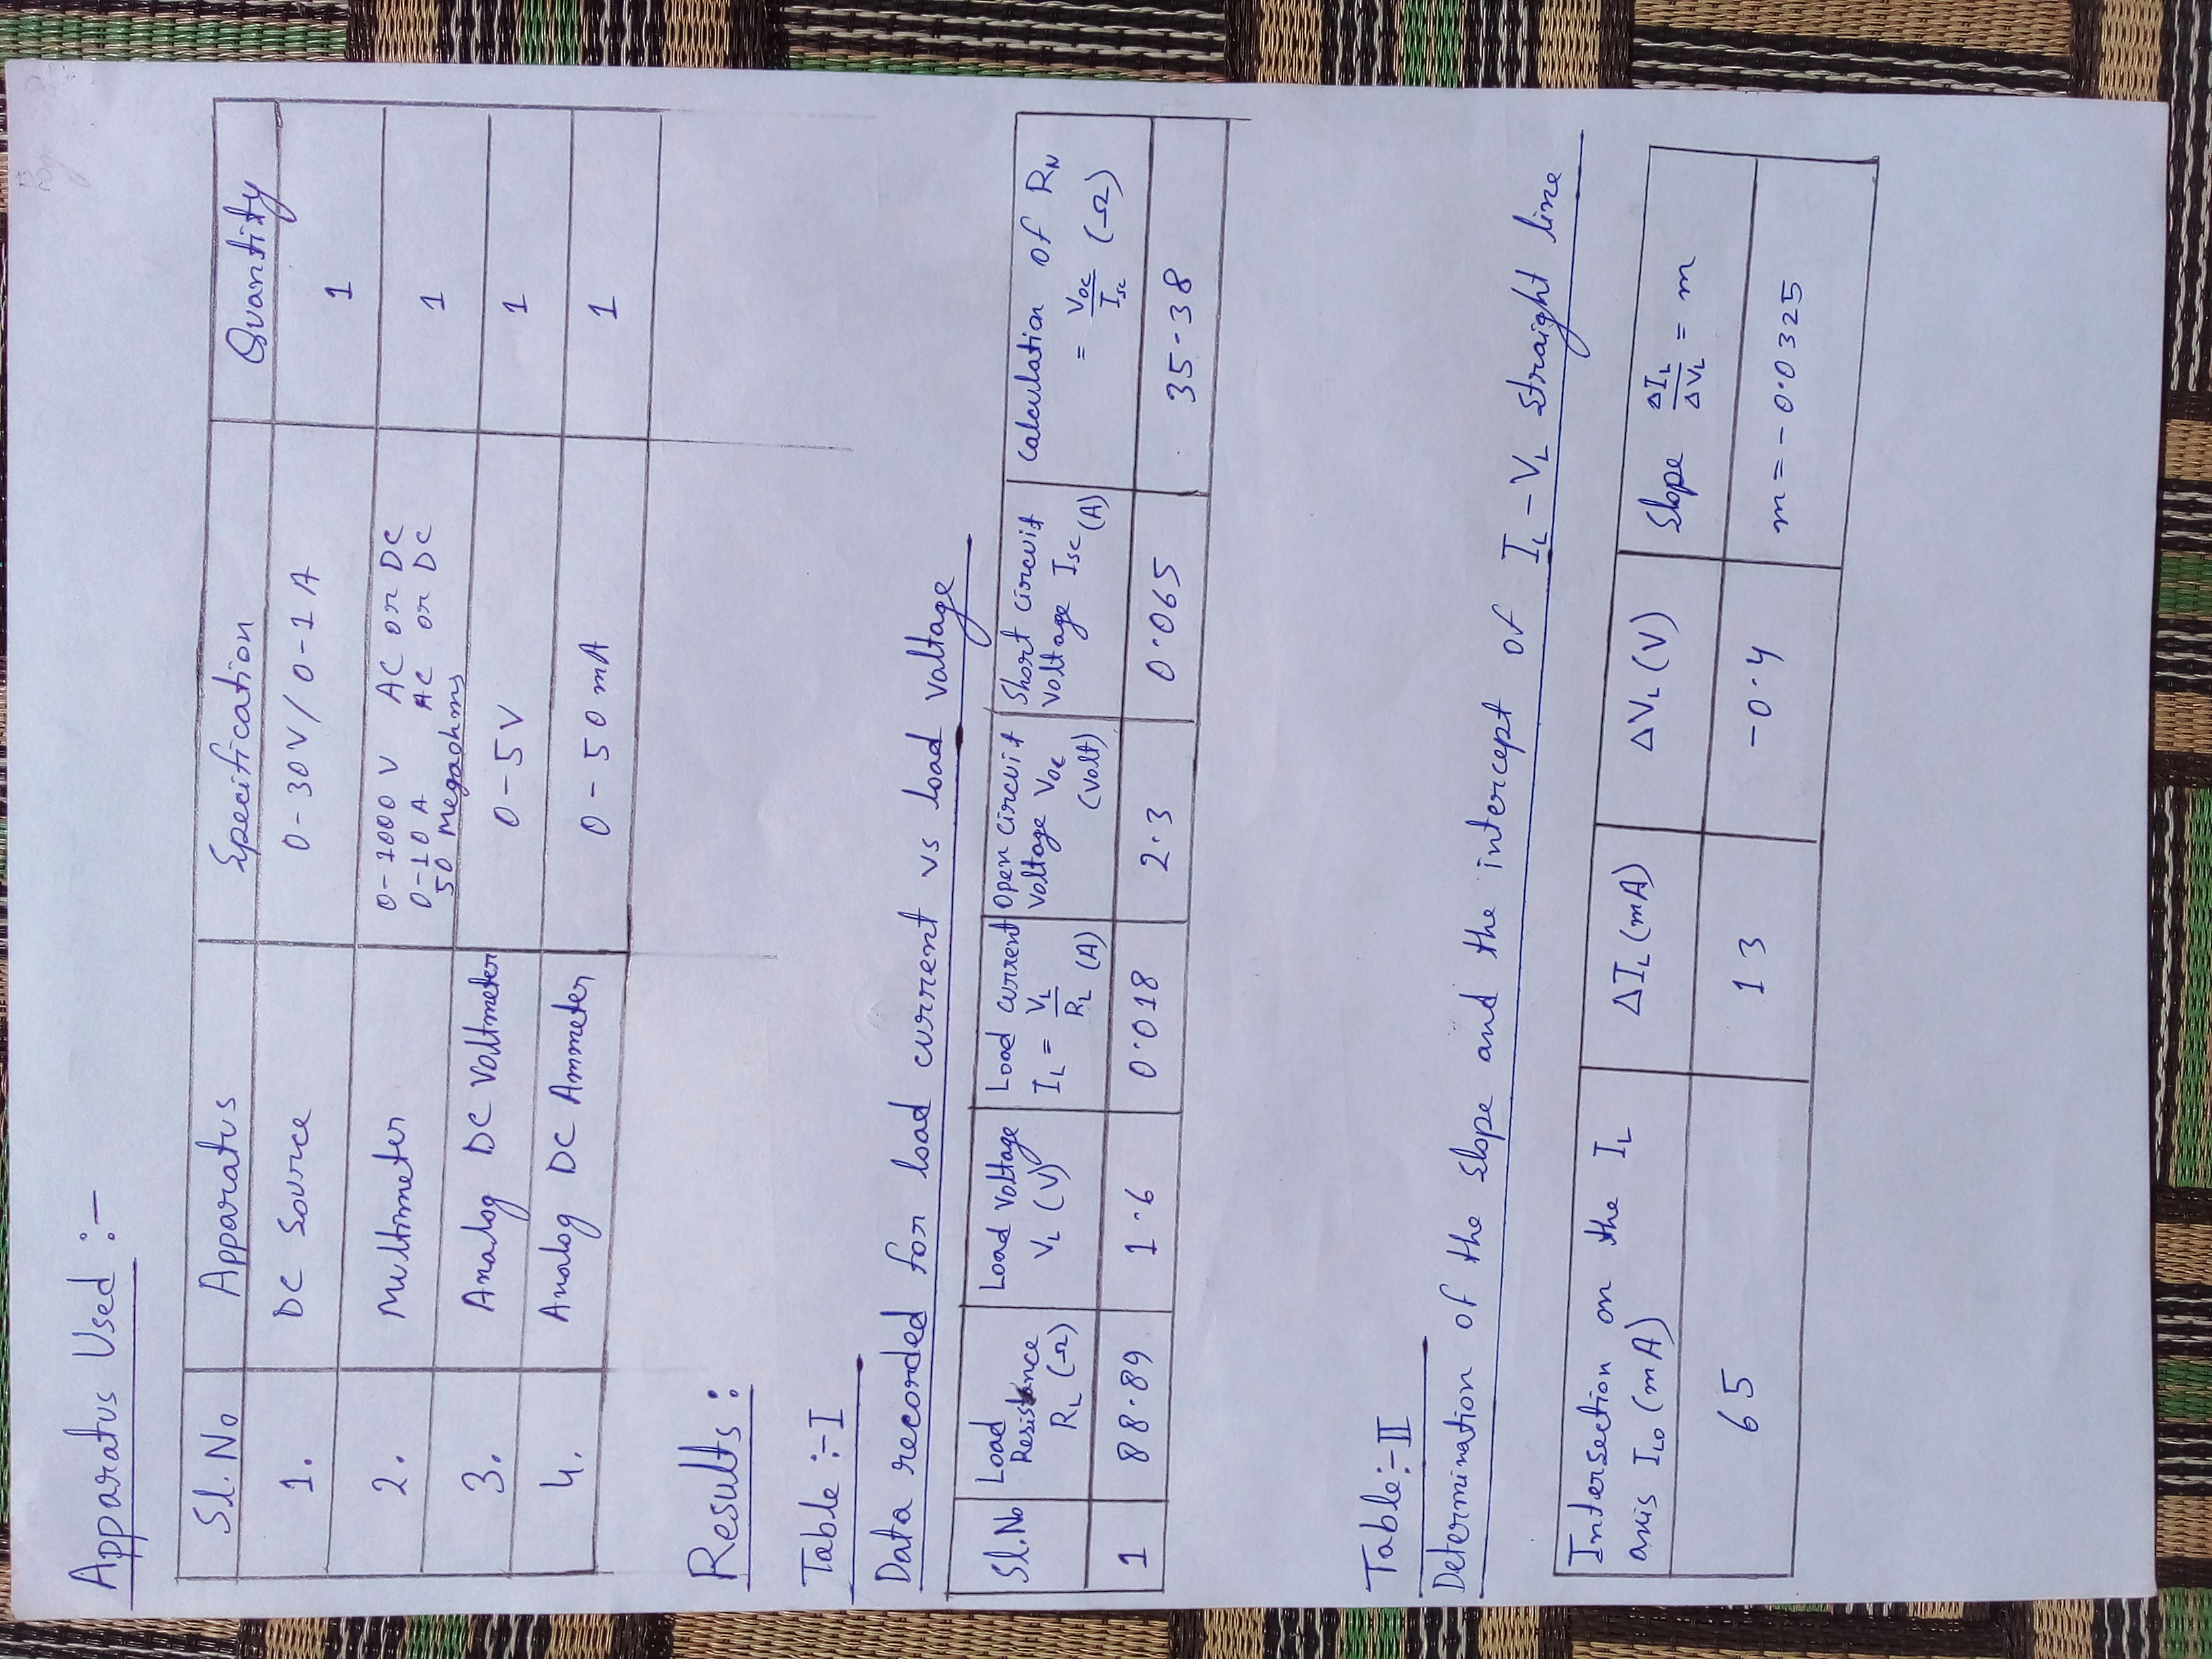 Apparatus Used :-
Sl. No Apparatus Specification Quantity
1. DC Source 0-30V/ 0-1 A 1
2. Multimeter 0-1000 V AC or DC 1
0-10 A AC or DC
50 Megaohms
3. Analog DC Voltmeter 0-5V 1
4. Analog DC Ammeter 0-50 mA 1
Results :
Table :-I
Data recorded for load current vs load voltage
Sl.No
Load
Resistance
RL (Ω)
Load Voltage
VL (V)
Load current
IL = VL/RL (A)
Open Circuit
Voltage Voc
(Volt)
Short Circuit
Voltage Isc (A)
Calculation of RN
= Voc/Isc (Ω)
1 88.89 1.6 0.018 2.3 0.065 35.38
Table:-II
Determination of the slope and the intercept of IL-VL straight line
Intersection on the IL
axis IL0 (mA)
ΔIL (mA)
ΔVL (V)
Slope ΔIL/ΔVL = m
65 13 -0.4 m = -0.0325